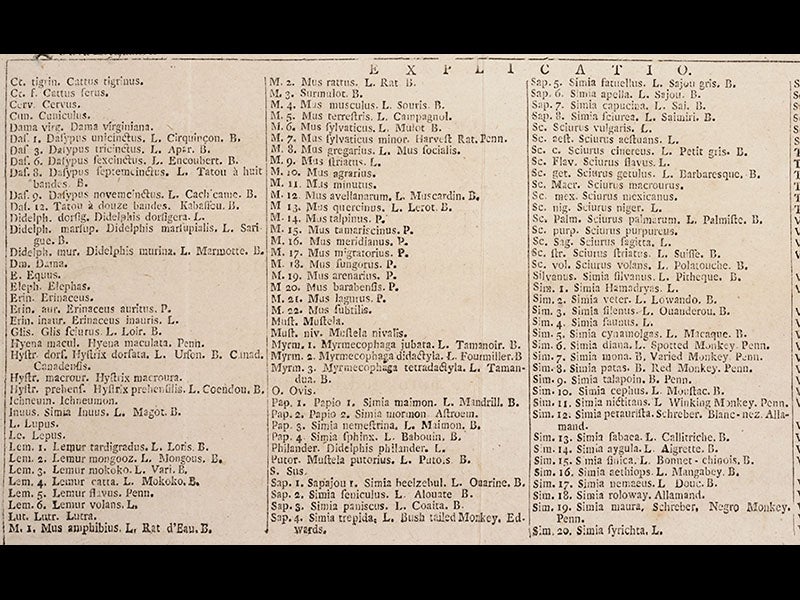 EXPLICATIO.
Ct. tigrin. Cattus tigrinus.
Ct. f. Cattus ferus.
Cerv. Cervus.
Cun. Cuniculus.
Dama virg. Dama virginiana.
Daſ. 1. Daſypus unicinctus. L. Cirquinçon. B.
Daſ. 3. Daſypus tricinctus. L. Apar. B.
Daſ. 6. Daſypus ſexcinctus. L. Encoubert. B.
Daſ. 8. Daſypus ſeptemcinctus. L. Tatou à huit
bandes. B.
Daſ. 9. Daſypus novemcinctus. L. Cachicame. B.
Daſ. 12. Tatou à douze bandes. Kabaſſou. B.
Didelph. dorſig. Didelphis dorſigera. L.
Didelph. marſup. Didelphis marſupialis. L. Sari
gue. B.
Didelph. mur. Didelphis murina. L. Marmotte. B.
Dm. Dama.
E. Equus.
Eleph. Elephas.
Erin. Erinaceus.
Erin. aur. Erinaceus auritus. P.
Erin. inaur. Erinaceus inauris. L.
Glis. Glis ſciurus. L. Loir. B.
Hyena macul. Hyena maculata. Penn.
Hyſtr. dorſ. Hyſtrix dorſata. L. Urſon. B. Cuad.
Canadenſis.
Hyſtr. macrour. Hyſtrix macroura.
Hyſtr. prehenſ. Hyſtrix prehenſilis. L. Coendou. B.
Ichneum. Ichneumon.
Inuus. Simia Inuus. L. Magot. B.
L. Lupus.
Le. Lepus.
Lem. 1. Lemur tardigradus. L. Loris. B.
Lem. 2. Lemur mongooz. L. Mongous. B.
Lem. 3. Lemur mokoko. L. Vari. B.
Lem. 4. Lemur catta. L. Mokoko. B.
Lem. 5. Lemur flavus. Penn.
Lem. 6. Lemur volans. L.
Lut. Lutr. Lutra.
M. 1. Mus amphibius. L. Rat d'Eau. B.
M. 2. Mus rattus. L. Rat B.
M. 3. Surmulot. B.
M. 4. Mus musculus. L. Souris. B.
M. 5. Mus terreſtris. L. Campagnol.
M. 6. Mus ſylvaticus. L. Mulot B.
M. 7. Mus ſylvaticus minor. Harveſt Rat. Penn.
M. 8. Mus gregarius. L. Mus ſocialis.
M. 9. Mus ſtriatus. L.
M. 10. Mus agrarius.
M. 11. Mus minutus.
M. 12. Mus avellanarum. L. Muscardin. B.
M. 13. Mus quercinus. L. Lerot. B.
M. 14. Mus talpinus. P.
M. 15. Mus tamariscinus. P.
M. 16. Mus meridianus. P.
M. 17. Mus migratorius. P.
M. 18. Mus ſungorus. P.
M. 19. Mus arenarius. P.
M 20. Mus barabenſis. P.
M. 21. Mus lagurus. P.
M. 22. Mus ſubtilis.
Muſt. Muſtela.
Muſt. niv. Muſtela nivalis.
Myrm. 1. Myrmecophaga jubata. L. Tamanoir. B.
Myrm. 2. Myrmecophaga didactyla. L. Fourmiller. B
Myrm. 3. Myrmecophaga tetradactyla. L. Taman-
dua. B.
O. Ovis.
Pap. 1. Papio 1. Simia maimon. L. Mandrill. B.
Pap. 2. Papio 2. Simia mormon. Alſtroem.
Pap. 3. Simia nemeſtrina. L. Maimon. B.
Pap. 4. Simia ſphinx. L. Babouin. B.
Philander. Didelphis philander. L.
Putor. Muſtela putorius. L. Putois B.
S. Sus.
Sap. 1. Sapajou 1. Simia beelzebul. L. Ouarine. B.
Sap. 2. Simia ſeniculus. L. Alouate B.
Sap. 3. Simia paniscus. L. Coaita. B.
Sap. 4. Simia trepida. L. Bush tailed Monkey. Ed-
wards.
Sap. 5. Simia fatuellus. L. Sajou gris. B.
Sap. 6. Simia apella. L. Sajou. B.
Sap. 7. Simia capucina. L. Sai. B.
Sap. 8. Simia ſciurea. L. Saimiri. B.
Sc. Sciurus vulgaris. L.
Sc. aeſt. Sciurus aeſtuans. L.
Sc. c. Sciurus cinereus. L. Petit gris. B.
Sc. Flav. Sciurus flavus. L.
Sc. get. Sciurus getulus. L. Barbaresque. B.
Sc. Macr. Sciurus macrourus.
Sc. mex. Sciurus mexicanus.
Sc. nig. Sciurus niger. L.
Sc. Palm. Sciurus palmarum. L. Palmiſte. B.
Sc. purp. Sciurus purpureus.
Sc. Sag. Sciurus ſagitta. L.
Sc. ſtr. Sciurus ſtriatus. L. Suiſſe. B.
Sc. vol. Sciurus volans. L. Polatouche. B.
Silvanus. Simia ſilvanus. L. Pitheque. B.
Sim. 1. Simia Hamadryas. L.
Sim. 2. Simia veter. L. Lowando. B.
Sim. 3. Simia ſilenus. L. Ouanderou. B.
Sim. 4. Simia faunus. L.
Sim. 5. Simia cynamolgas. L. Macaque. B.
Sim. 6. Simia diana. L. Spotted Monkey. Penn.
Sim. 7. Simia mona. B. Varied Monkey. Penn.
Sim. 8. Simia patas. B. Red Monkey. Penn.
Sim. 9. Simia talapoin. B. Penn.
Sim. 10. Simia cephus. L. Mouſtac. B.
Sim. 11. Simia nictitans. L Winking Monkey. Penn.
Sim. 12. Simia petauriſta. Schreber. Blanc-nez. Alla-
mand.
Sim. 13. Simia ſabaea. L. Callitriche. B.
Sim. 14. Simia aygula. L. Aigrette. B.
Sim. 15. Simia ſinica. L. Bonnet-chinois. B.
Sim. 16. Simia aethiops. L. Mangabey. B.
Sim. 17. Simia nemaeus. L Douc. B.
Sim. 18. Simia roloway. Allamand.
Sim. 19. Simia maura, Schreber, Negro Monkey.
Penn.
Sim. 20. Simia ſyrichta. L.